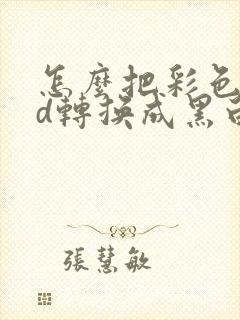 怎麼把彩色
d轉換成黑白
張慧敏